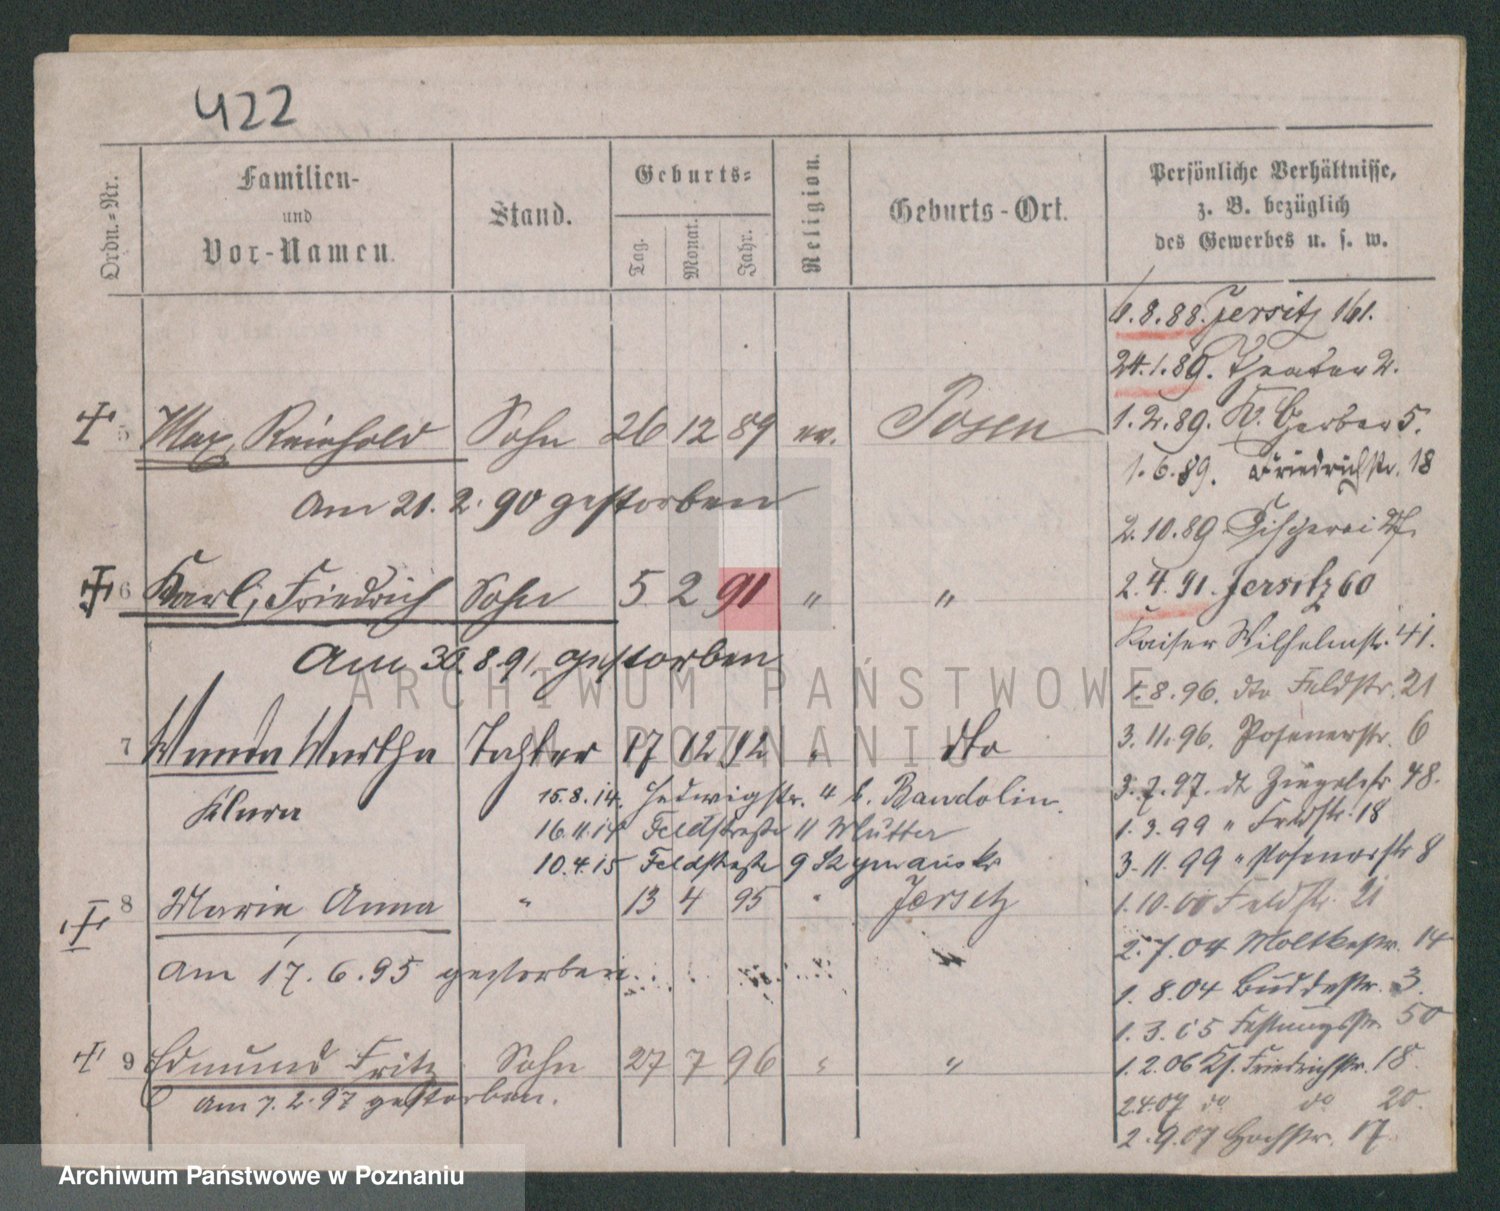 422
Ordn.-Nr.
Familien-
und
Vor-Namen.
Stand.
Geburts-
Tag.
Monat.
Jahr.
Religion.
Geburts-Ort.
Persönliche Verhältnisse,
z. B. bezüglich
des Gewerbes u. s. w.
5 Max, Reinhold Sohn 26 12 89 ev. Posen
Am 21. 2. 90 gestorben
6 Karl, Friedrich Sohn 5 2 91 " "
Am 30. 8. 91. gestorben
7 Wanda Martha Tochter 17 12 92 " dto
Klara
15.8.14. Hedwigstr. 4 b. Bandolin.
16.11.14 Feldstraße 11 Mutter
10.4.15 Feldstraße 9
8 Marie Anna " 13 4 95 " Jersitz
Am 17. 6. 95 gestorben.
9 Edmund Fritz Sohn 27 7 96 " "
Am 7. 2. 97 gestorben.
1.8.88. Jersitz 161.
24.1.89. Theater 2.
1.2.89. Kl. Gerber 5.
1.6.89. Friedrichstr. 18
2.10.89 Fischerei
2.4.91. Jersitz 60
Kaiser Wilhelmstr. 41.
1.8.96. dto Feldstr. 21
3.11.96. Posenerstr. 6
3.7.97. dt Ziegelstr 48.
1.3.99 " Feldstr. 18
3.11.99 " Posenerstr 8
1.10.00 Feldstr. 21
2.7.04 Moltkestr. 14
1.8.04 Buddestr. 3.
1.3.05 Festungsstr. 50
1.2.06 Kl. Friedrichstr. 18.
2.4.07 do do 20.
2.9.07 Hochstr. 17.
ARCHIWUM PAŃSTWOWE
W POZNANIU
Archiwum Państwowe w Poznaniu